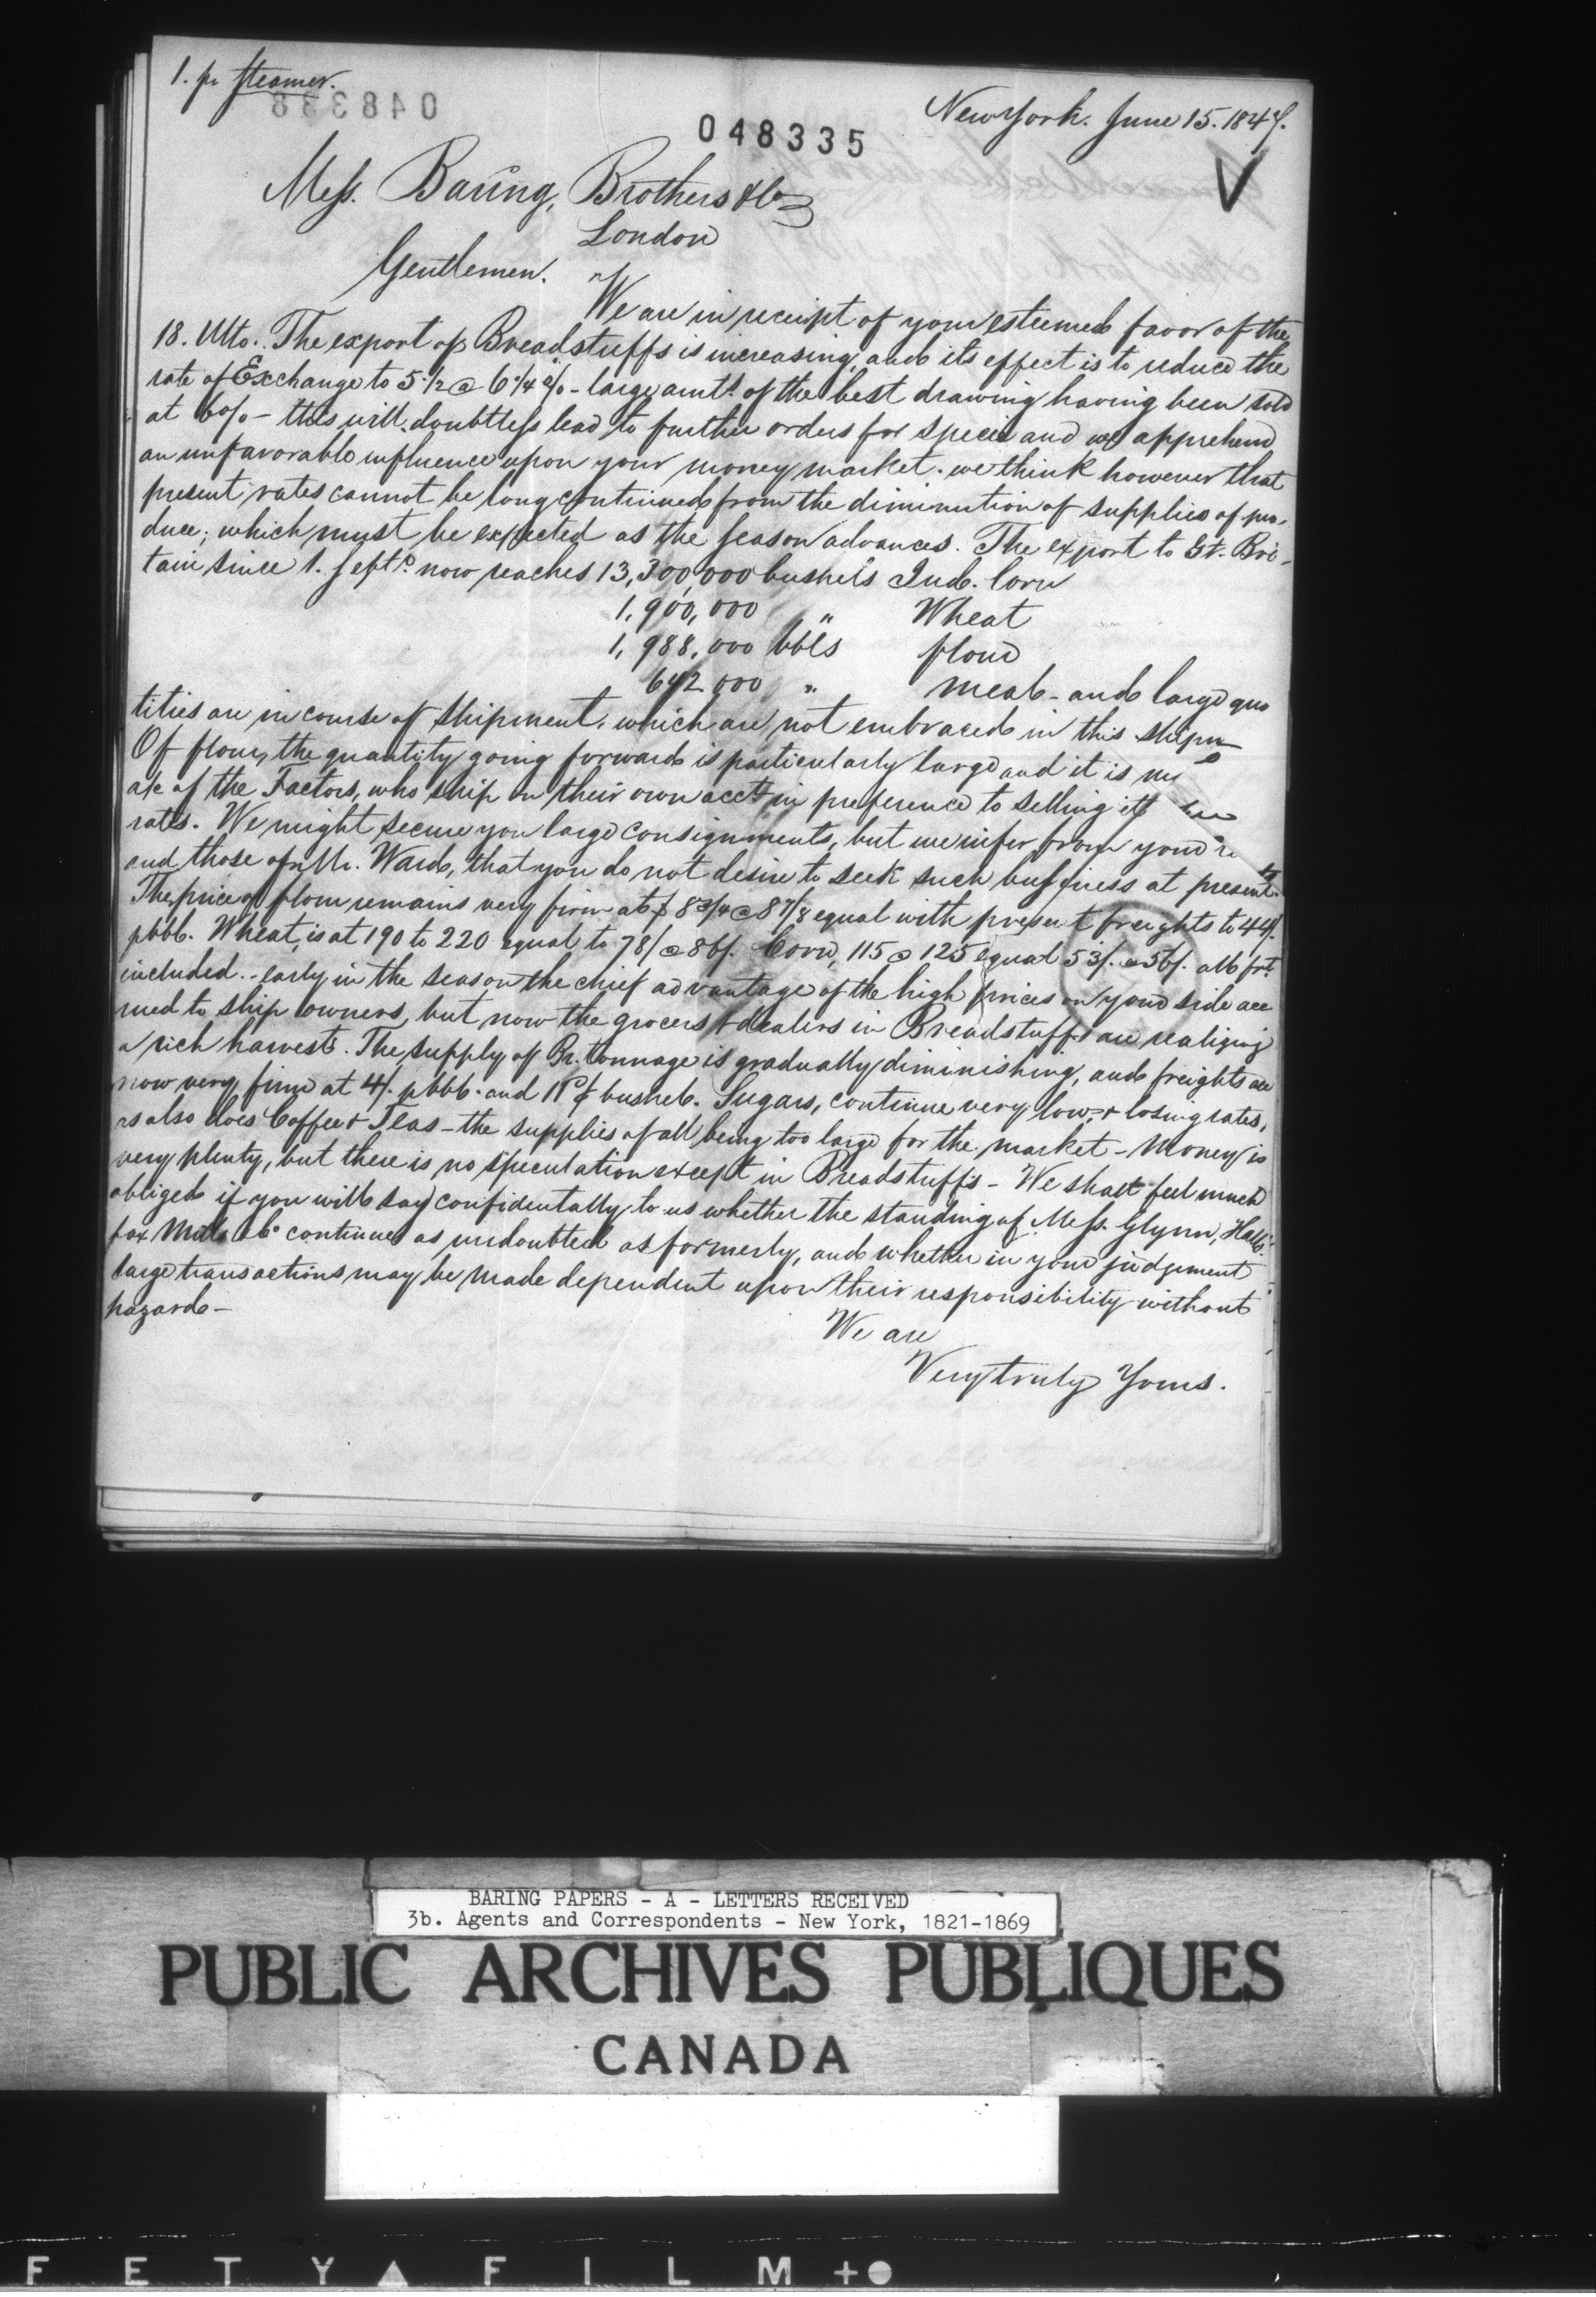 1. pr Steamer.
048338
048335
New York. June 15. 1847.
Mess. Baring, Brothers & Co
London
Gentlemen.
We are in receipt of your esteemed favor of the
18. Ulto. The export of Breadstuffs is increasing, and its effect is to reduce the
rate of Exchange to 5 1/2 @ 6 1/4 % - large amts. of the best drawing having been sold
at 6% - this will doubtless lead to further orders for specie and we apprehend
an unfavorable influence upon your money market. we think however that
present rates cannot be long continued from the diminution of supplies of pro-
duce; which must be expected as the season advances. The export to Gt. Bri-
tain since 1. Septr. now reaches 13,300,000 bushels Ind. Corn
1,900,000 " Wheat
1,988,000 bbls flour
642.000 " meal - and large qua
tities are in course of shipment, which are not embraced in this
Of flour, the quantity going forward is particularly large and it is
a/c of the Factors, who ship on their own acct. in preference to selling it
rates. We might secure you large consignments, but we infer from your
and those of Mr. Ward, that you do not desire to seek such business at present.
The price of flour remains very firm at $ 8 3/4 @ 8 7/8 equal with present freights to 44/.
p bbl. Wheat, is at 190 to 220 equal to 78/ @ 86/. Corn, 115 @ 125 equal 53/. @ 56/. all frt.
included. - early in the season the chief advantage of the high prices on your side acc
rued to ship owners, but now the grocers & dealers in Breadstuffs are realizing
a rich harvest. The supply of Br. tonnage is gradually diminishing, and freights are
now very firm at 4/. p bbl. and bushel. Sugars, continue very low, & losing rates,
as also does Coffee & Teas - the supplies of all being too large for the market - Money is
very plenty, but there is no speculation except in Breadstuffs - We shall feel much
obliged if you will say confidentally to us whether the standing of Mess. Glynn, Halli-
fax Mills & Co continues as undoubted as formerly, and whether in your judgement
large transactions may be made dependent upon their responsibility without
hazard -
We are
Very truly Yours.
BARING PAPERS - A - LETTERS RECEIVED
3b. Agents and Correspondents - New York, 1821-1869
PUBLIC ARCHIVES PUBLIQUES
CANADA
F E T Y F I L M